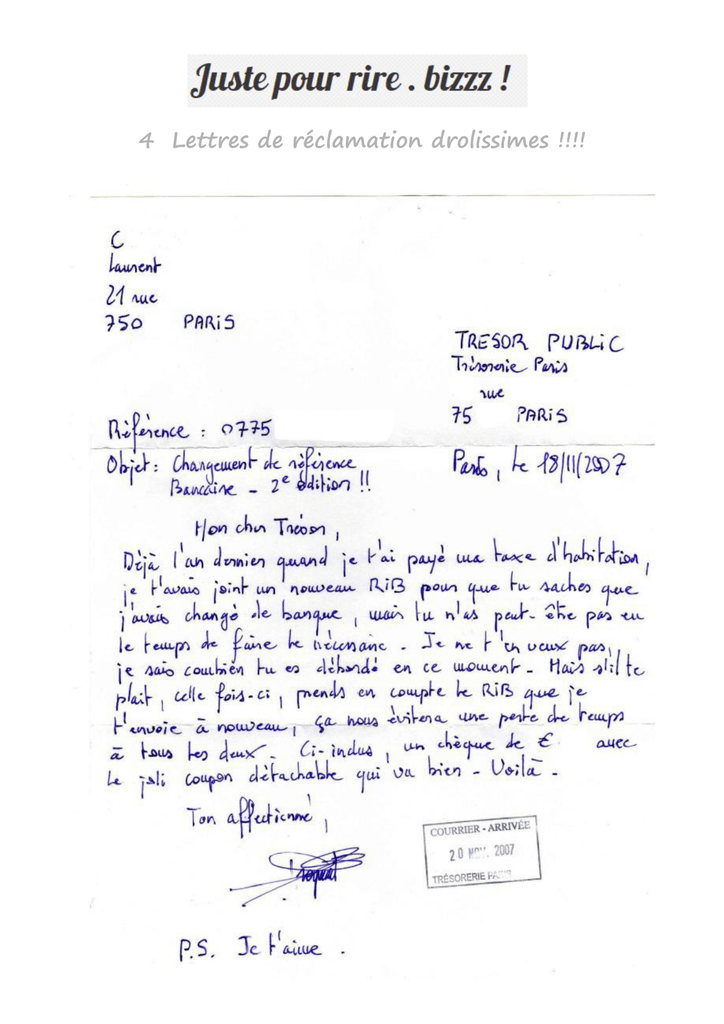 Juste pour rire . bizzz !
4 Lettres de réclamation drolissimes !!!!
C
Laurent
21 rue
750 PARIS
TRESOR PUBLIC
Trésorerie Paris
rue
75 PARIS
Référence : 0775
Objet : Changement de référence
Bancaire - 2e édition !!
Paris, le 18/11/2007
Mon cher Trésor,
Déjà l'an dernier quand je t'ai payé ma taxe d'habitation,
je t'avais joint un nouveau RiB pour que tu saches que
j'avais changé de banque, mais tu n'as peut-être pas eu
le temps de faire le nécessaire. Je ne t'en veux pas,
je sais combien tu es débordé en ce moment. Mais s'il te
plait, cette fois-ci, prends en compte le RiB que je
t'envoie à nouveau, ça nous évitera une perte de temps
à tous les deux. Ci-inclus, un chèque de € avec
le joli coupon détachable qui va bien - Voilà -
Ton affectionné,
COURRIER - ARRIVÉE
20 NOV. 2007
TRÉSORERIE PARIS
P.S. Je t'aime.